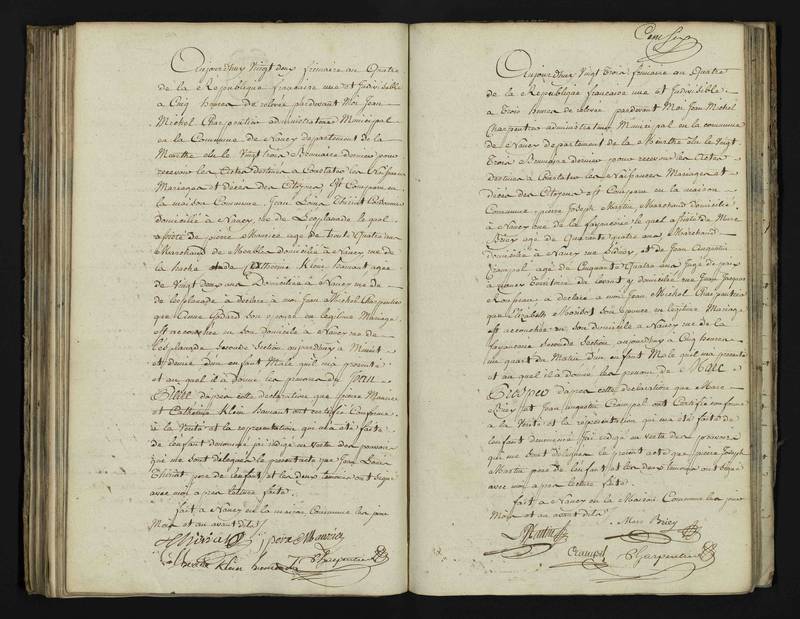 Aujourd'huy Vingt deux frimaire an Quatre
de la République française une et Indivisible
à Cinq heures de relevée pardevant Moi Jean
Michel Charpentier administrateur Municipal
en la Commune de Nancy departement de la
Meurthe elu le Vingt trois Brumaire dernier pour
recevoir les Actes destinés à Constater les Naissances
Mariages et décès des Citoyens Est Comparu en
la maison Commune Jean Louis
domicilié à Nancy rue de Lesplanade le quel
assisté de pierre Maurice agé de trente Quatre ans
Marchand de Meubles domicilié à Nancy rue de
la hache de Catherine Klein agée
de Vingt deux ans Domiciliée à Nancy rue de
de Lesplanade à déclaré à moi Jean Michel Charpentier
que Anne Godard son épouse en legitime Mariage
est accouchée en son domicile à Nancy rue de
l'Esplanade seconde section aujourdhuy à Minuit
et demie d'un enfant Male qu'il m'a présenté
et au quel il à donné les prenoms de Jean
Pierre d'apres cette déclaration que pierre Maurice
et Catherine Klein ont certifié Conforme
à la Verité et la representation qui m'a été faite
de lenfant denommé j'ai rédigé en vertu des pouvoirs
qui me sont delegués le present acte que Jean Louis
pere de lenfant et les deux temoins ont signé
avec moi apres lecture faite.
fait à Nancy en la maison Commune les jour
Mois et an avant dits
piere Mauricy
Klein Charpentier
Aujourd'huy Vingt Trois frimaire an Quatre
de la République française une et Indivisible
à Trois heures de relevée pardevant Moi Jean Michel
Charpentier administrateur Municipal en la commune
de Nancy departement de la Meurthe elu le Vingt
Trois Brumaire dernier pour recevoir les Actes
destinés à Constater les Naissances Mariages et
décès des Citoyens est Comparu en la maison
Commune pierre Joseph Martin Marchand domicilié
à Nancy rue de la fayencerie le quel assisté de Marc
Briey agé de Quarante quatre ans Marchand
domicilié à Nancy rue et de Jean
Crampel agé de Cinquante Quatre ans Juge de paix
à Nancy y domicilié rue Jean Jacques
Rousseau à déclaré à moi Jean Michel Charpentier
que Elizabeth son épouse en legitime Mariage
est accouchée en son domicile à Nancy rue de la
fayencerie seconde section aujourdhuy à Cinq heures
un quart du Matin d'un enfant Male qu'il m'a presenté
et au quel il à donné les prenoms de Marc
Prosper d'apres cette déclaration que Marc
Briey et Jean Crampel ont Certifié conforme
à la Verité et la représentation qui m'a été faite de
lenfant denommé j'ai rédigé en vertu des pouvoirs
qui me sont delegués le present acte que pierre Joseph
Martin pere de lenfant et les deux temoins ont signé
avec moi apres lecture faite.
fait à Nancy en la Maison Commune les jour
Mois et an avant dits
Martin Marc Briey
Crampel Charpentier